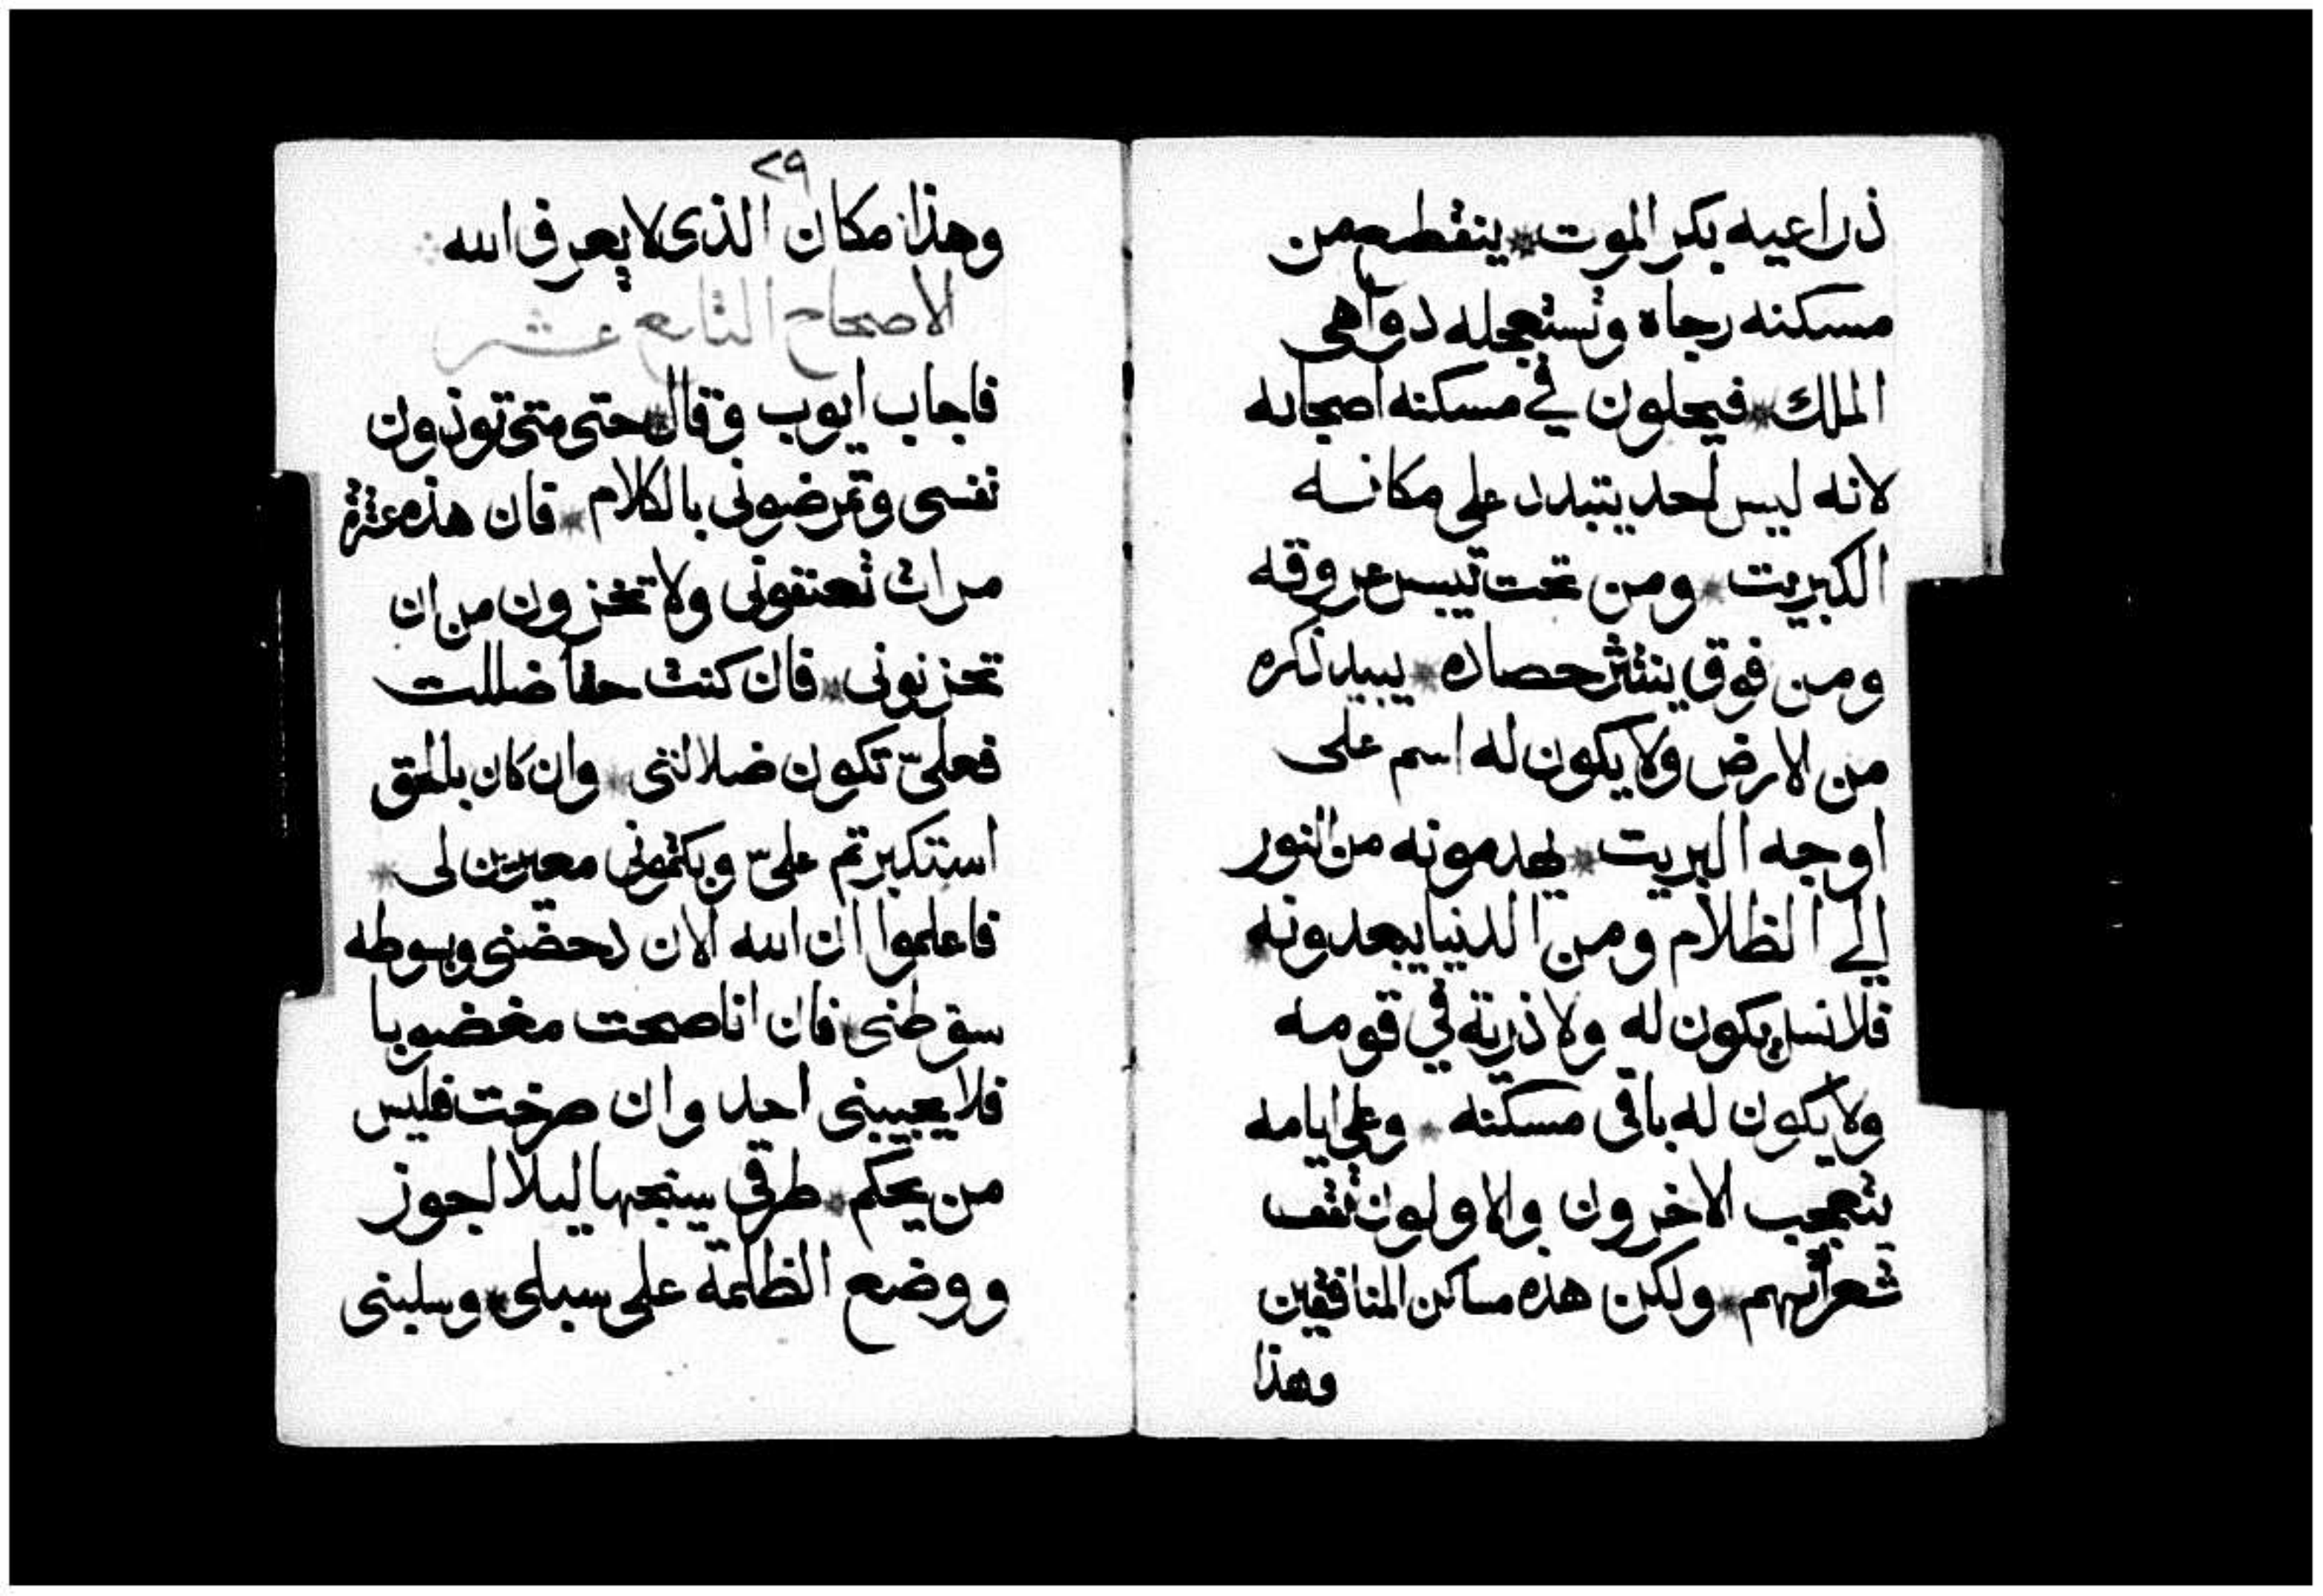 ذراعيه بكر الموت * ينقطع من
مسكنه رجاه وتستعجله دواهى
الملك * فيحلون في مسكنه اصحابه
لانه ليس لحد يتبدد على مكانه
الكبريت * ومن تحت تيبس عروقه
ومن فوق ينتثر حصاده * يبيد ذكره
من الارض ولا يكون له اسم على
اوجه البريت * يهدمونه من النور
الي الظلام ومن الدنيا يبعدونه *
فلا نسل يكون له ولا ذرية في قومه
ولا يكون له باقى مسكنه * وعلى ايامه
تتعجب الاخرون والاولون تقف
شعرأتهم * ولكن هذه مساكن المنافقين
وهذا
٢٩
وهذا مكان الذى لا يعرف الله
الاصحاح التاسع عشر
فاجاب ايوب وقال * حتى متى توذون
نفسى وتمرضونى بالكلام * فان هذه عشرة
مرات تعنفونى ولا تخزون من ان
تحزنونى * فان كنت حقا ضللت
فعلىّ تكون ضلالتى * وان كان بالحق
استكبرتم علىّ وبكتمونى معيرين لى *
فاعلموا ان الله الان دحضنى وبسوطه
سوطنى * فان انا صحت مغضوبا
فلا يجيبنى احد وان صرخت فليس
من يحكم * طرقى سيجها ليلا لجوز
ووضع الظلمة على سبلى * وسلبنى